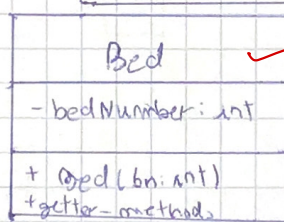 Bed
- bedNumber: int
+ Bed(bn: int)
+getter-methods